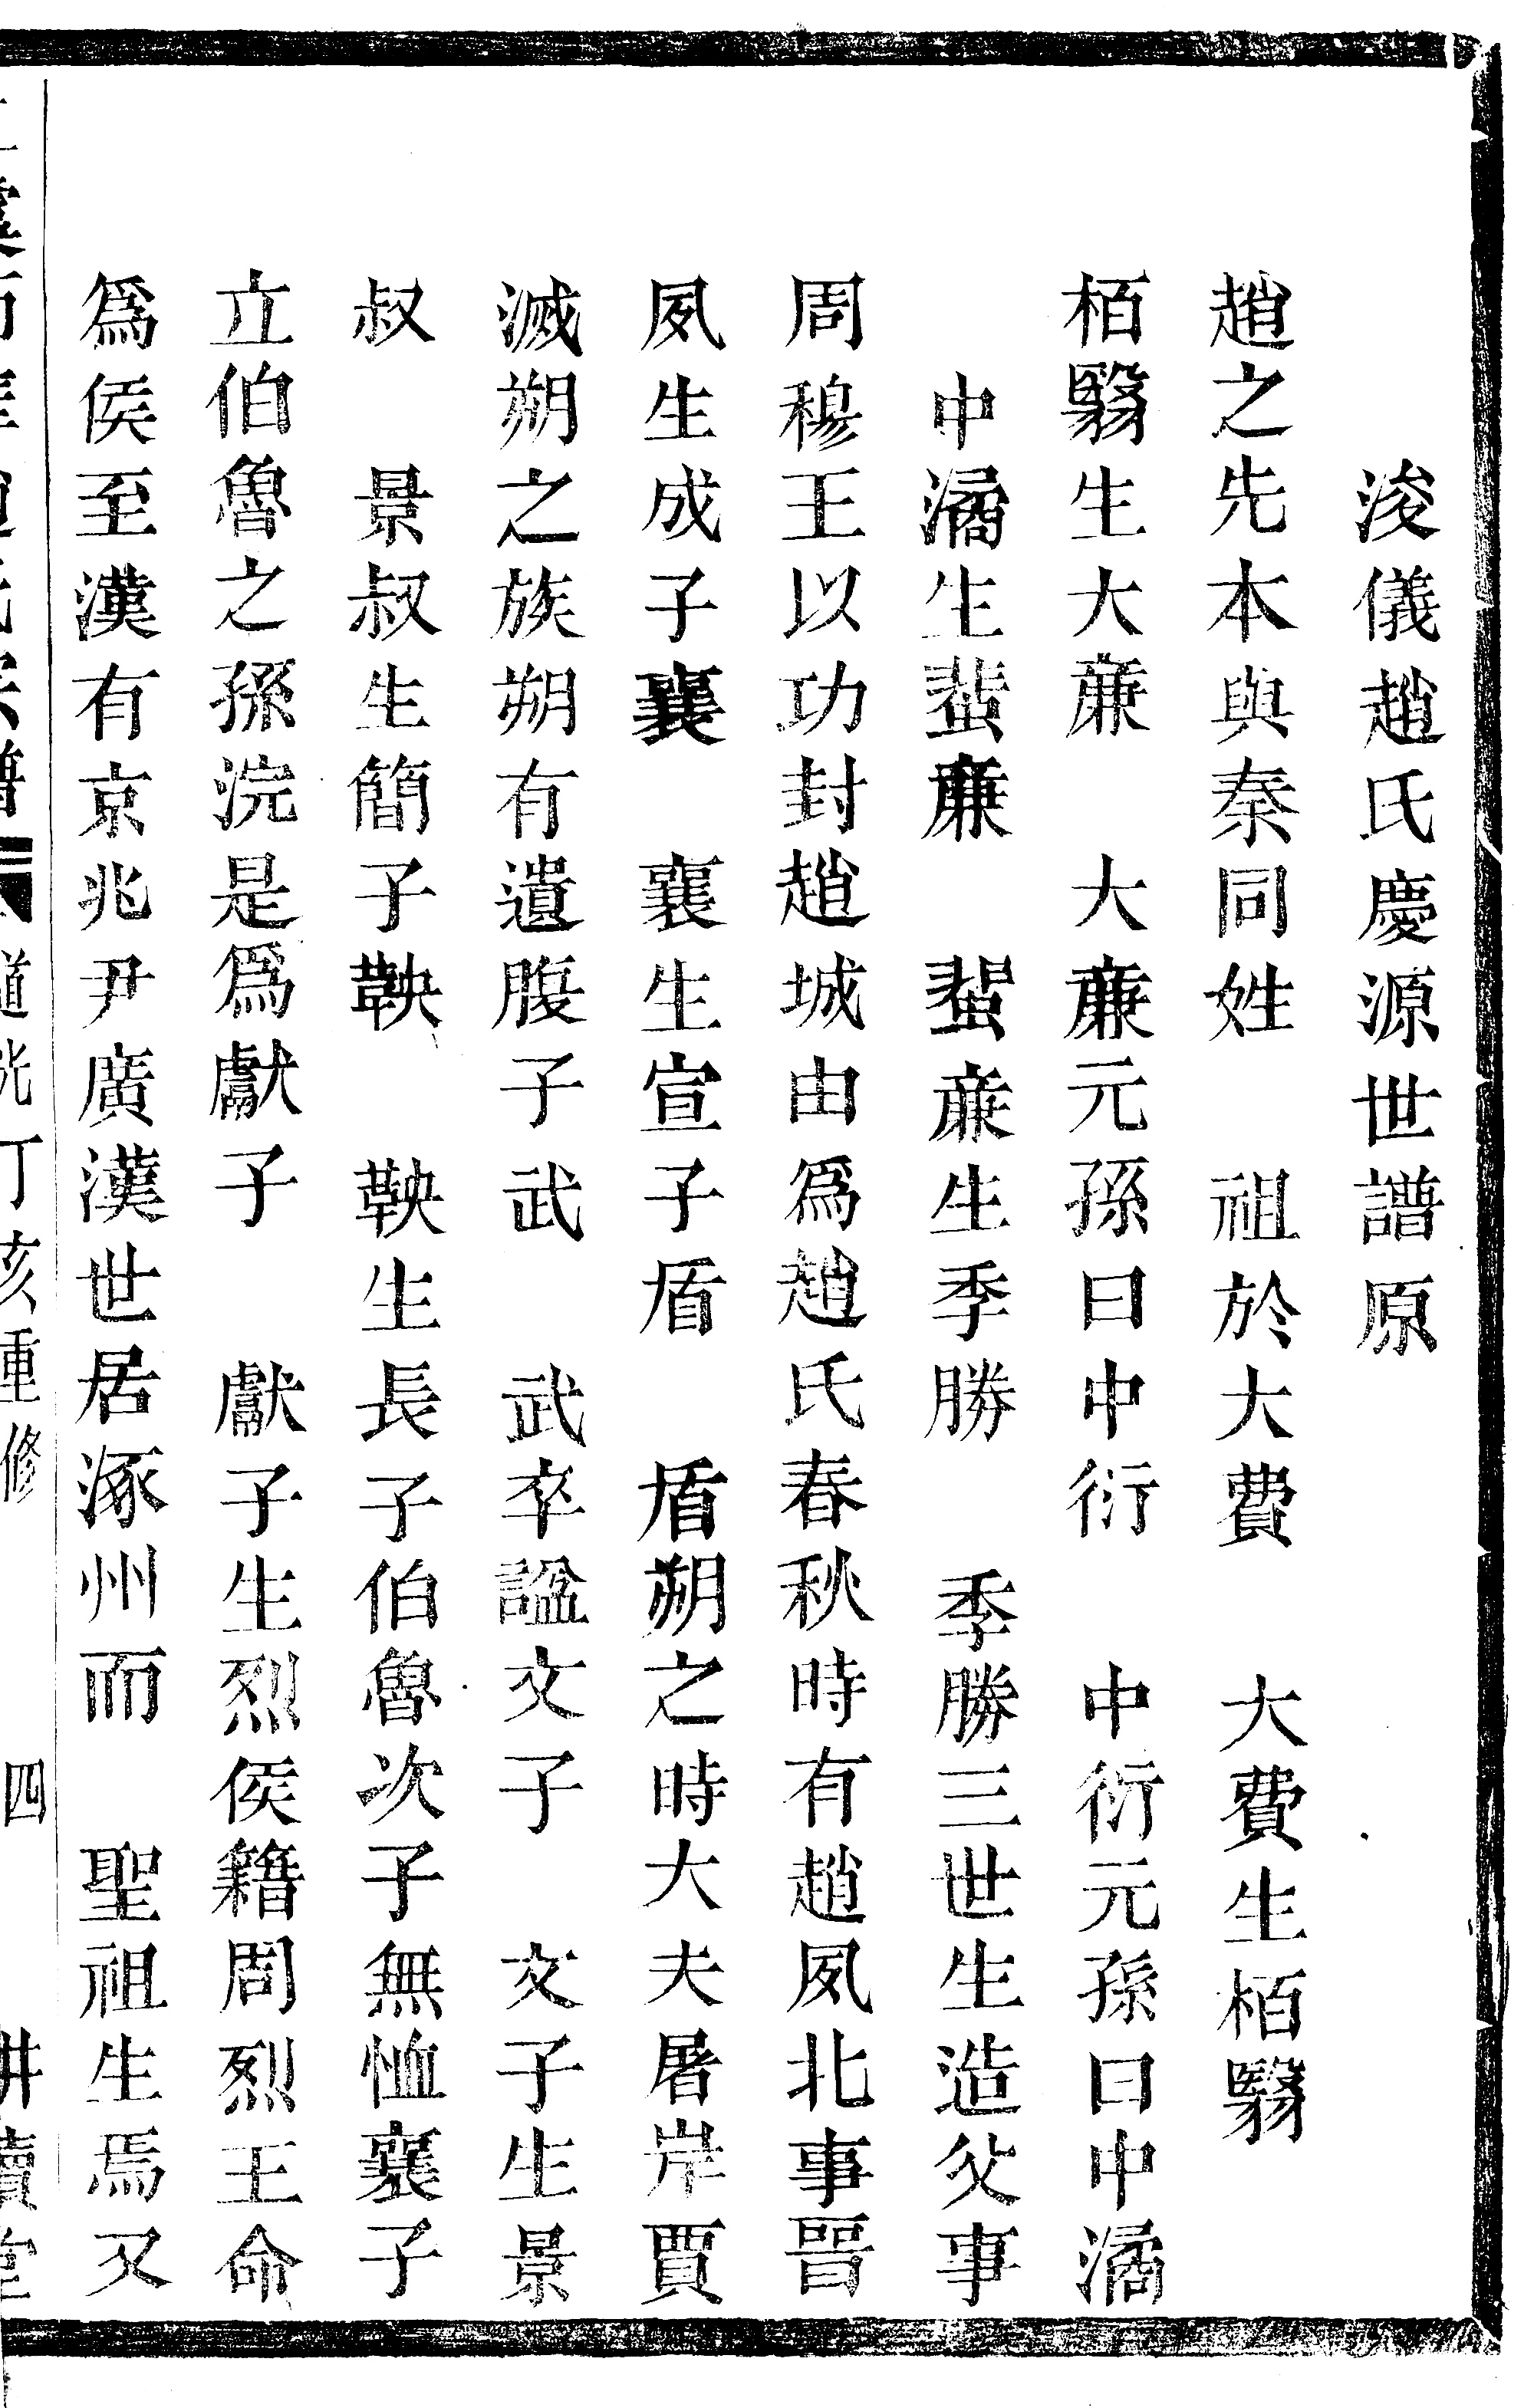 浚儀趙氏慶源世譜原
趙之先本與秦同姓　祖於大費　大費生栢翳
栢翳生大亷　大亷元孫曰中衍　中衍元孫曰中潏
中潏生蜚亷　蜚亷生季勝　季勝三世生造父事
周穆王以功封趙城由爲趙氏春秋時有趙夙北事晉
夙生成子襄　襄生宣子盾　盾朔之時大夫屠岸賈
滅朔之族朔有遺腹子武　武卒諡文子　文子生景
叔　景叔生簡子鞅　鞅生長子伯魯次子無恤襄子
立伯魯之孫浣是爲獻子　獻子生烈侯籍周烈王命
爲侯至漢有京兆尹廣漢世居涿州而　聖祖生焉又
丁亥重修　四